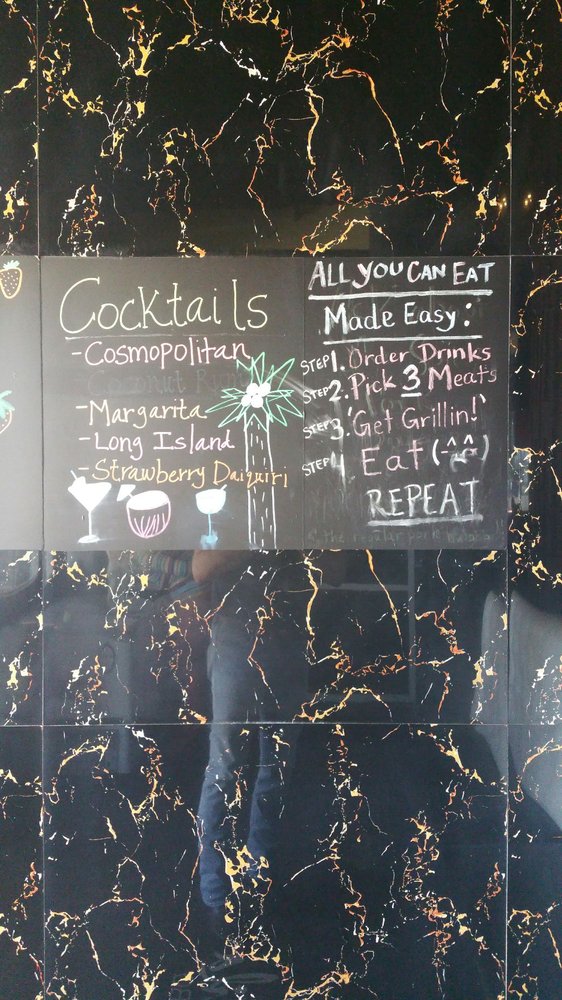 Cocktails
-Cosmopolitan
Coconut Rum
-Margarita
-Long Island
-Strawberry Daiquiri
ALL YOU CAN EAT
Made Easy:
STEP 1. Order Drinks
STEP 2. Pick 3 Meats
STEP 3. 'Get Grillin!'
STEP 4 Eat (-^^)
REPEAT
the regular pork